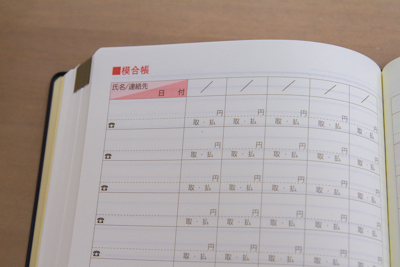 ■模合帳
氏名/連絡先 日付 / / / / /
円 円 円 円 円
☎ 取・払 取・払 取・払 取・払 取・払
円 円 円 円 円
☎ 取・払 取・払 取・払 取・払 取・払
円 円 円 円 円
☎ 取・払 取・払 取・払 取・払 取・払
円 円 円 円 円
☎ 取・払 取・払 取・払 取・払 取・払
円 円 円 円 円
☎ 取・払 取・払 取・払 取・払